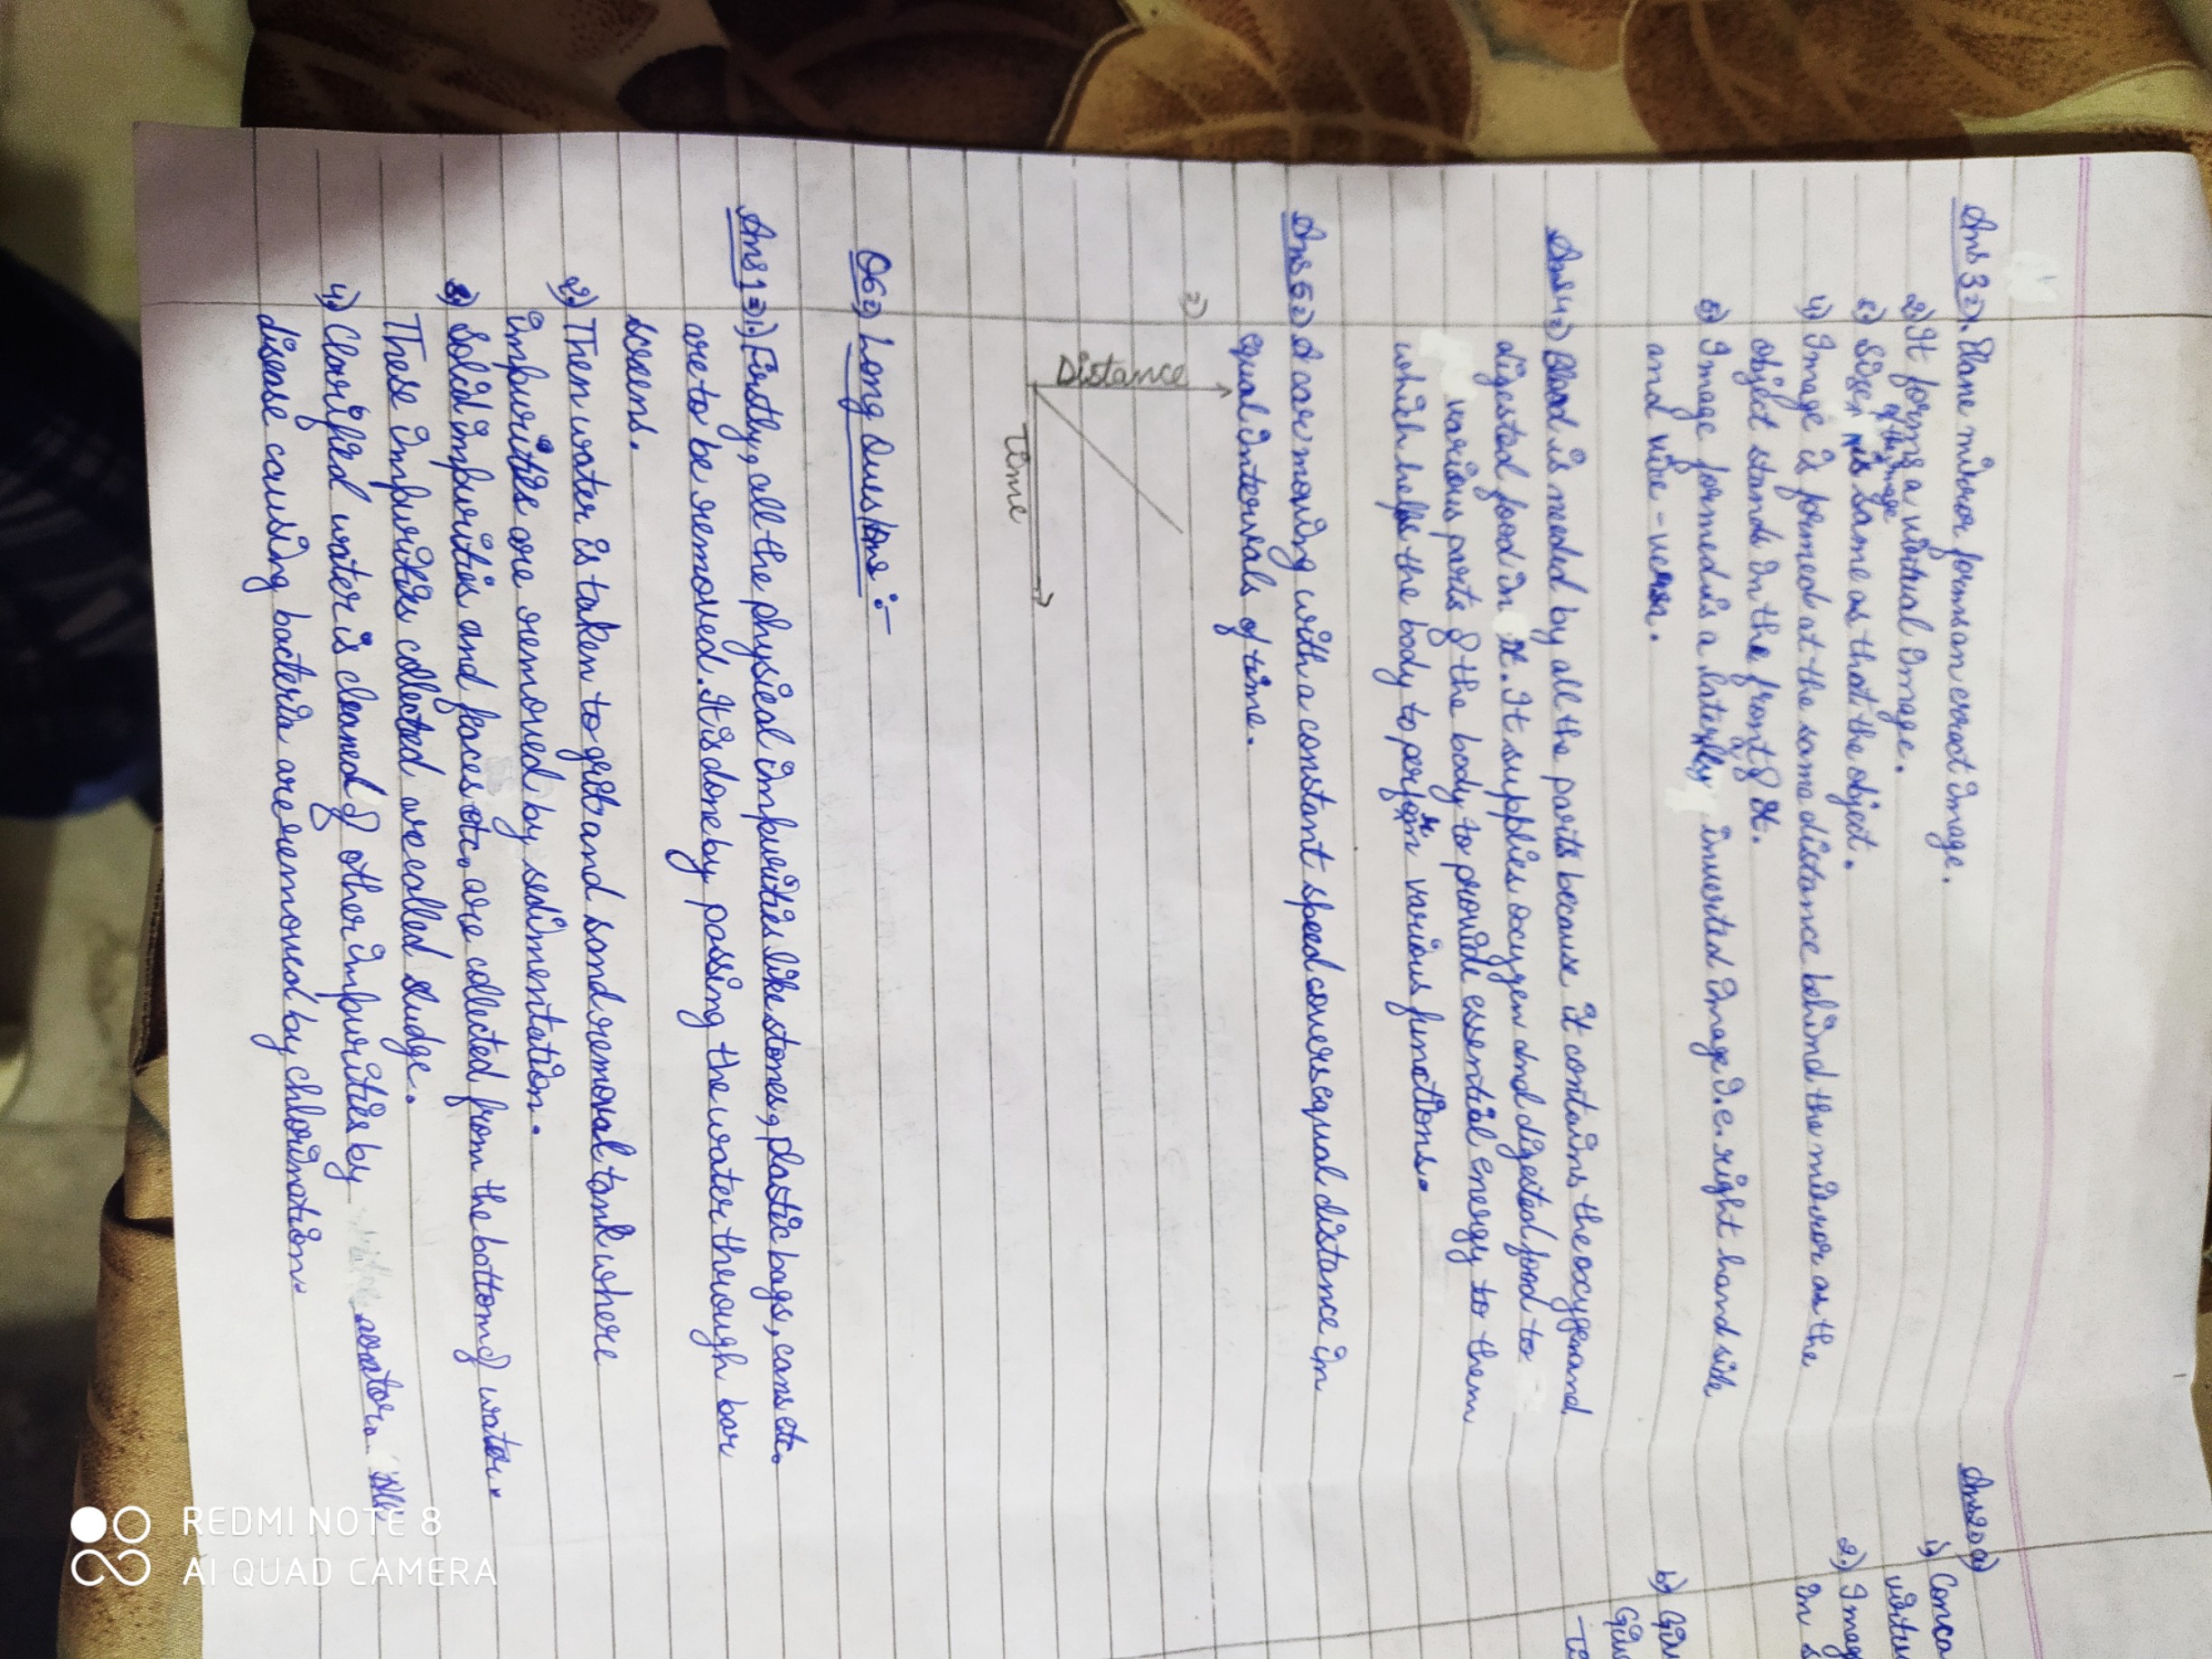 Ans 3 ⇒ 1. Plane mirror forms an erect image.
2) It forms a virtual image.
3) Size of the image is same as that the object.
4) Image is formed at the same distance behind the mirror as the
object stands in the front of it.
5) Image formed is a laterly inverted image i.e. right hand side
and vice-versa.
Ans 4 ⇒ Blood is needed by all the parts because it contains the oxygen and
digested food in it. It supplies oxygen and digested food to
various parts of the body to provide essential energy to them
which helps the body to perform various functions.
Ans 5 ⇒ A car moving with a constant speed covers equal distance in
equal intervals of time.
Distance
Time
Q6 ⇒ Long Ques/Ans :-
Ans 1 ⇒ 1.) Firstly, all the physical impurities like stones, plastic bags, cans etc.
are to be removed. It is done by passing the water therough bar
screens.
2) Then water is taken to grit and sand removal tank where
impurities are removed by sedimentation.
3) Solid impurities and feaces etc. are collected from the bottom of water.
These impurities collected are called sludge.
4) Clarified water is cleaned of other impurities by aerator. All
disease causing bacteria are removed by chlorination.
Ans 2 ⇒ a)
1) Conca
virtu
2.) Imag
in s
b) Giv
Giv